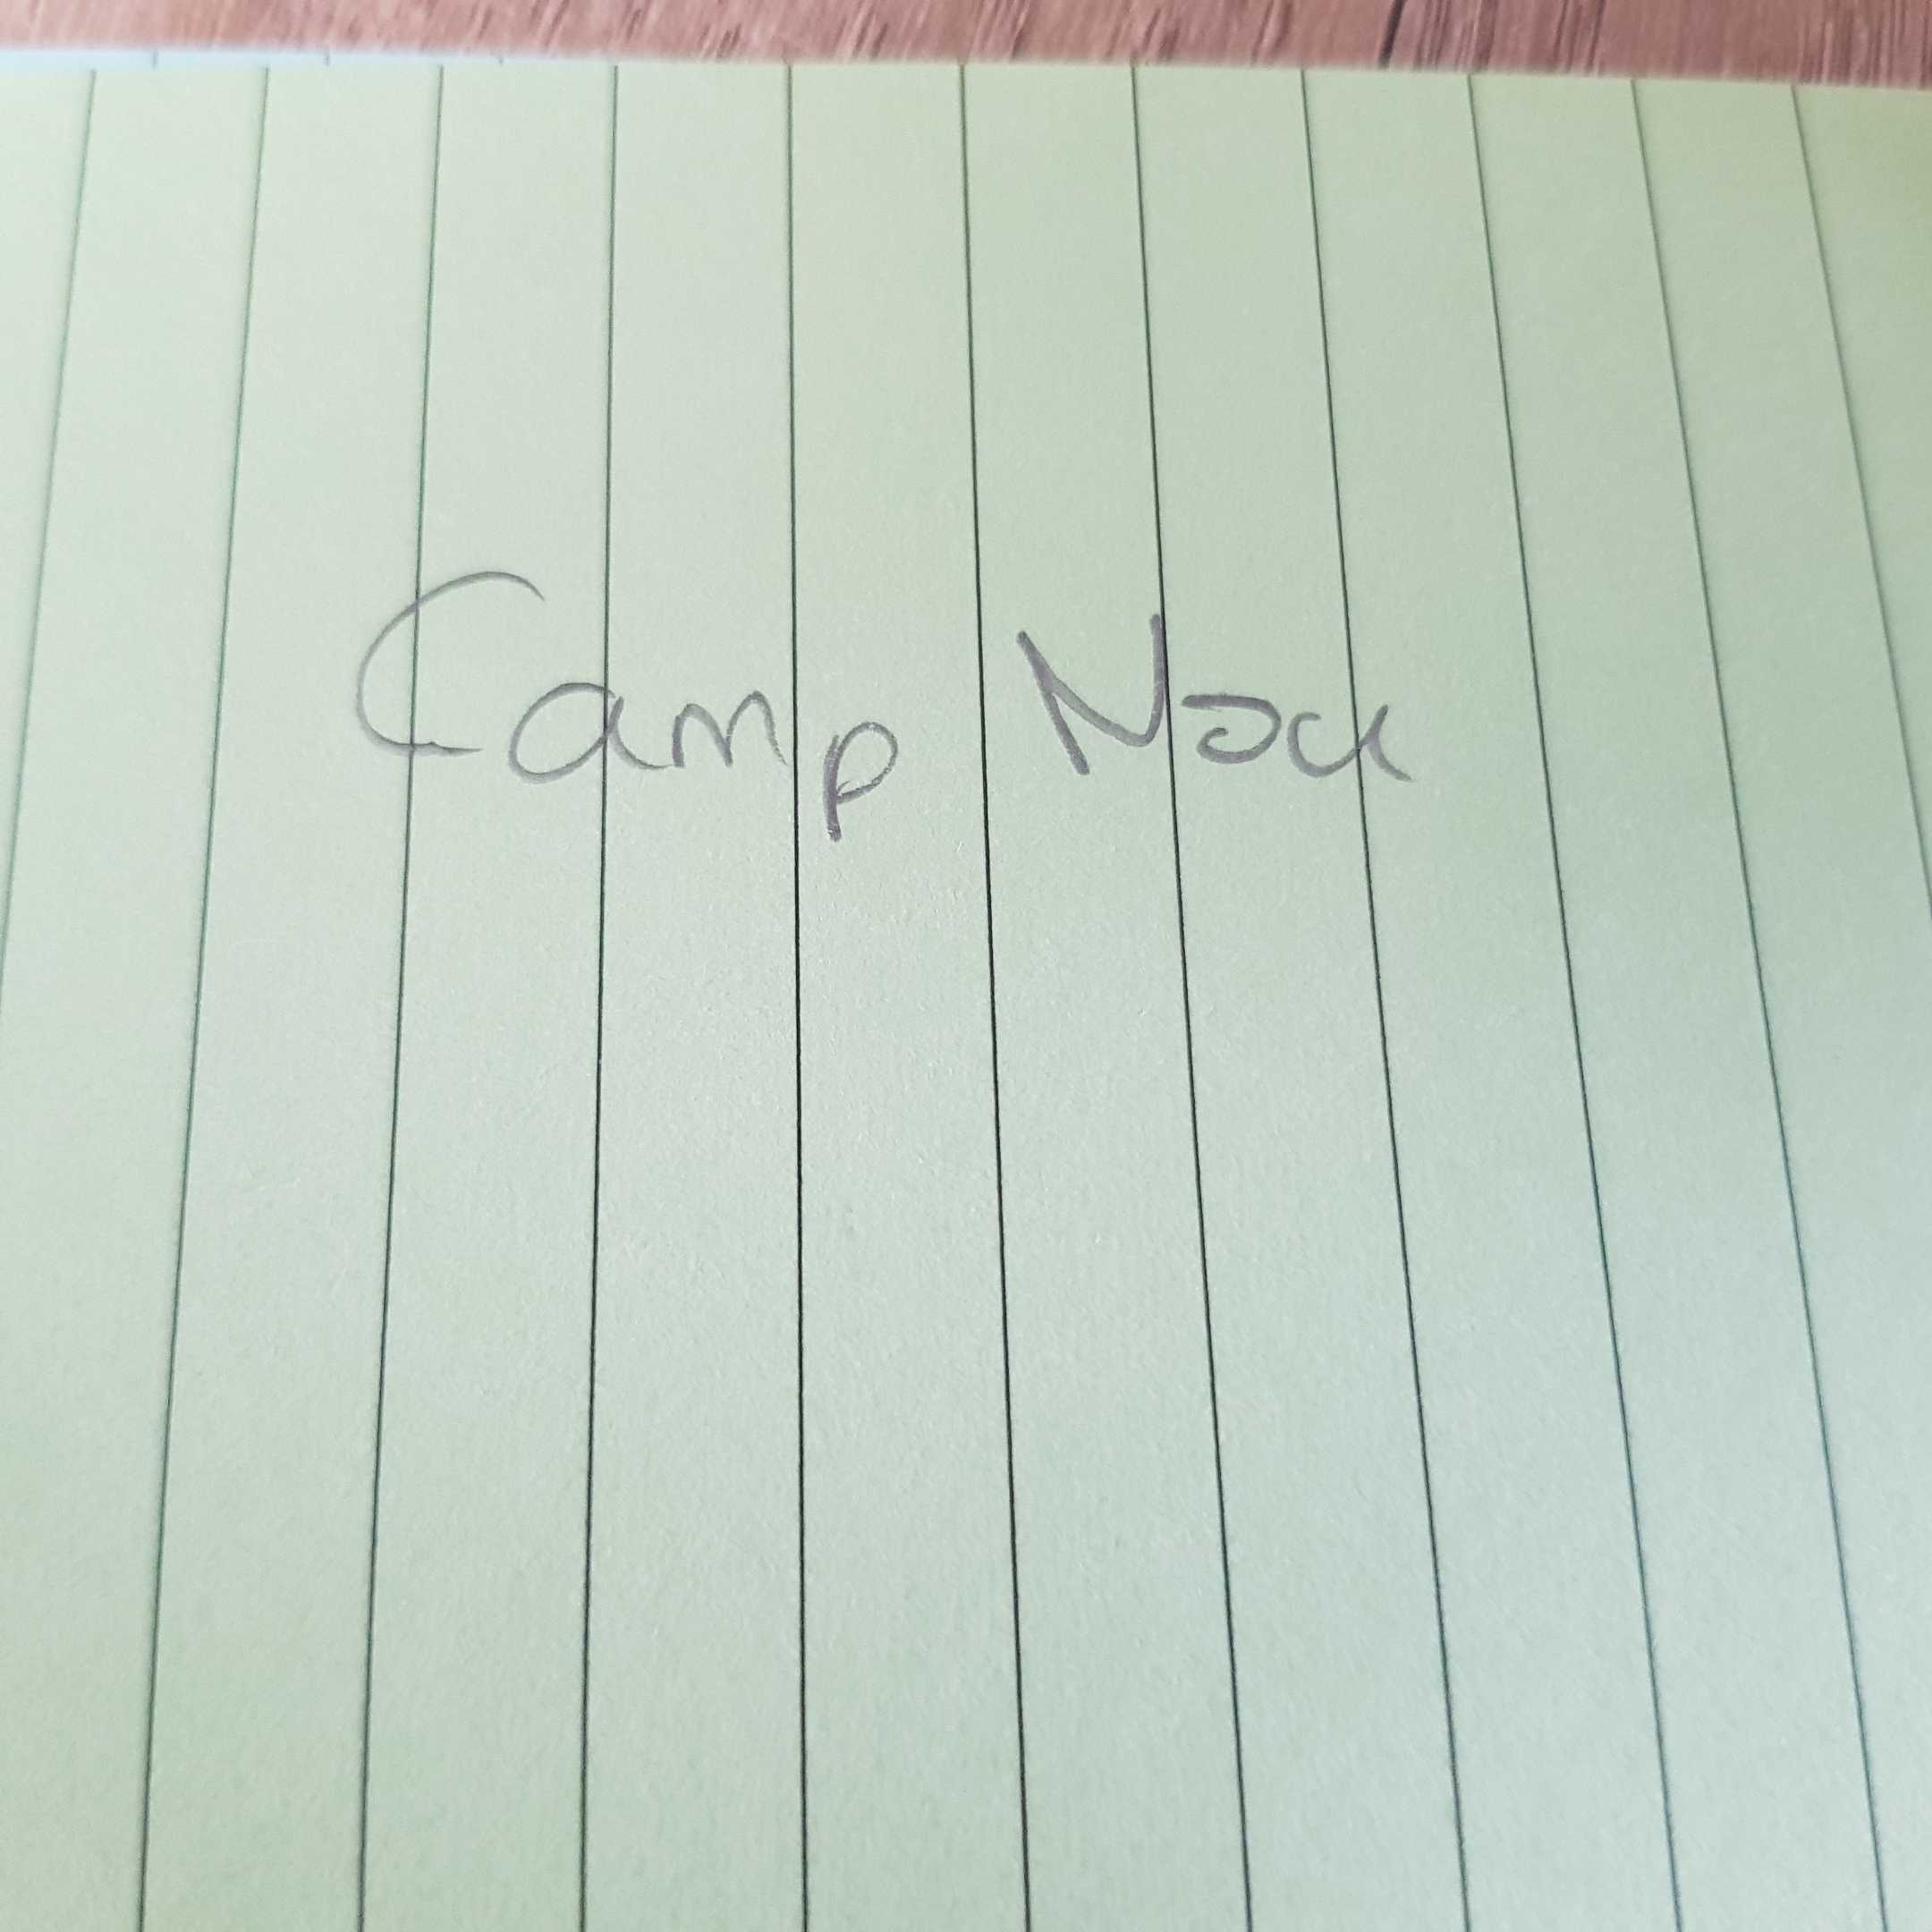 Camp Nou